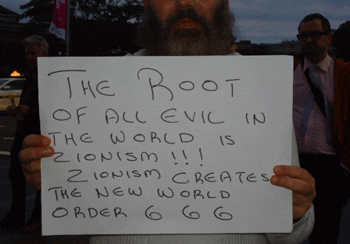 THE ROOT
OF ALL EVIL IN
THE WORLD IS
ZIONISM!!!
ZIONISM CREATES
THE NEW WORLD
ORDER 6 6 6